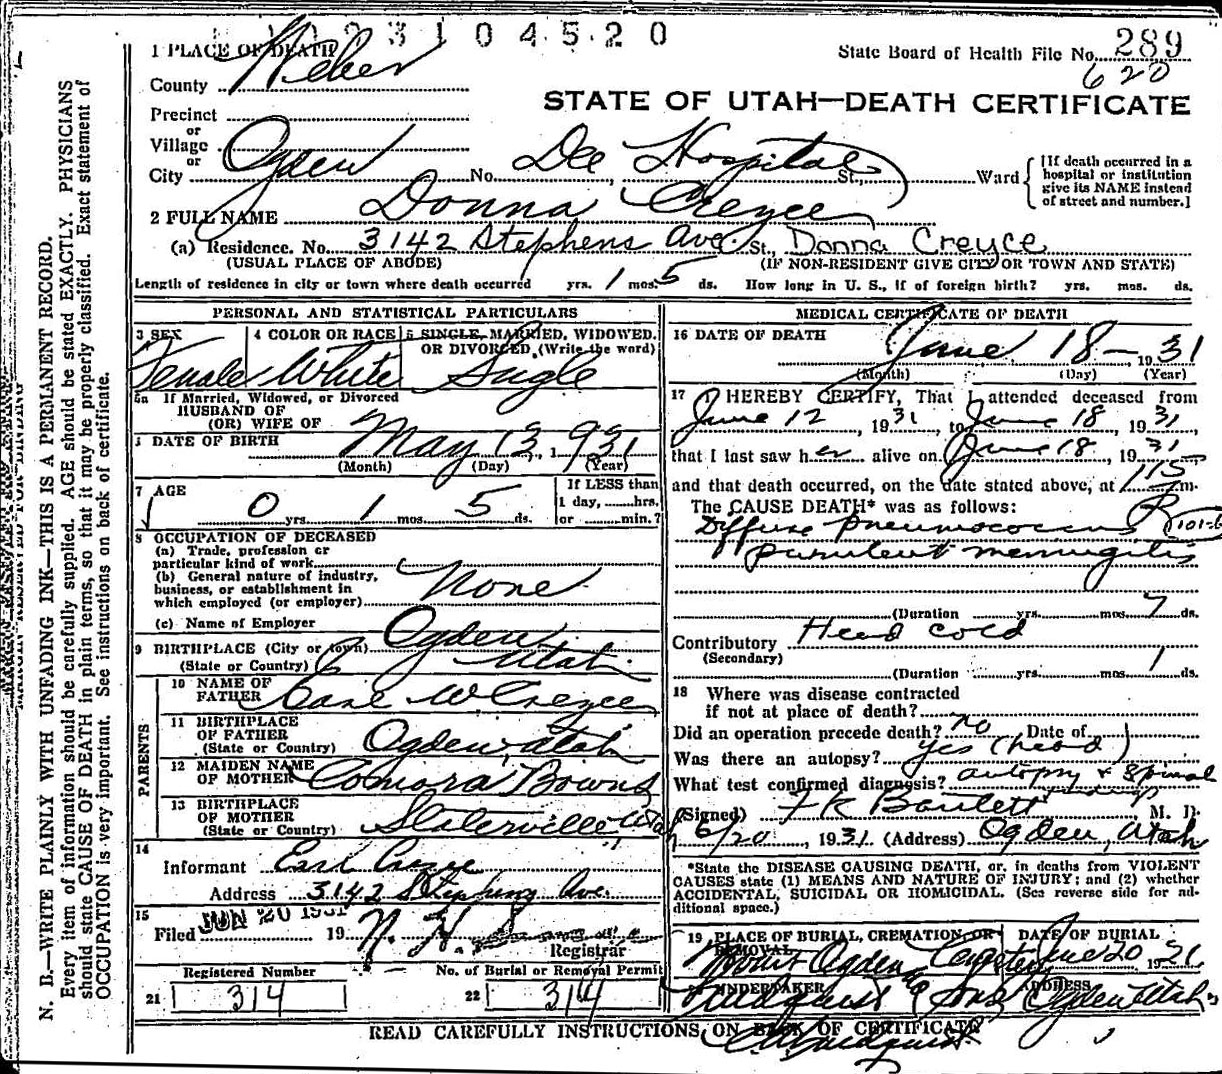 1 0 2 3 1 0 4 5 2 0
State Board of Health File No. 289
620
STATE OF UTAH—DEATH CERTIFICATE
1 PLACE OF DEATH
County Weber
Precinct
or
Village
or
City Ogden No. Dee Hospital St., Ward
[If death occurred in a
hospital or institution
give its NAME instead
of street and number.]
2 FULL NAME Donna Creyce
(a) Residence. No. 3142 Stephens Ave. St., Donna Creyce
(USUAL PLACE OF ABODE) (IF NON-RESIDENT GIVE CITY OR TOWN AND STATE)
Length of residence in city or town where death occurred yrs. 1 mos. 5 ds. How long in U. S., if of foreign birth? yrs. mos. ds.
PERSONAL AND STATISTICAL PARTICULARS
3 SEX Female
4 COLOR OR RACE White
5 SINGLE, MARRIED, WIDOWED,
OR DIVORCED, (Write the word)
Single
5a If Married, Widowed, or Divorced
HUSBAND OF
(OR) WIFE OF
DATE OF BIRTH May 13, 1931
(Month) (Day) (Year)
7 AGE
0 yrs. 1 mos. 5 ds.
If LESS than
1 day, hrs.
or min.?
8 OCCUPATION OF DECEASED
(a) Trade, profession or
particular kind of work
(b) General nature of industry,
business, or establishment in
which employed (or employer)
None
(c) Name of Employer
9 BIRTHPLACE (City or town) Ogden
(State or Country) Utah
PARENTS
10 NAME OF
FATHER Earl W Creyce
11 BIRTHPLACE
OF FATHER
(State or Country) Ogden, Utah
12 MAIDEN NAME
OF MOTHER Bowns
13 BIRTHPLACE
OF MOTHER
(State or Country) Slaterville, Utah
14
Informant Earl Creyce
Address 3142 Stephens Ave.
15
Filed JUN 20 1931 19
Registrar
Registered Number
21 314
No. of Burial or Removal Permit
22 314
MEDICAL CERTIFICATE OF DEATH
16 DATE OF DEATH June 18— 1931
(Month) (Day) (Year)
17 I HEREBY CERTIFY, That I attended deceased from
June 12, 1931, to June 18, 1931,
that I last saw her alive on June 18, 1931
and that death occurred, on the date stated above, at 115 m.
The CAUSE DEATH* was as follows:
Diffuse pneumococcus
purulent meningitis
(Duration yrs. mos. 7 ds.
Contributory Head cold
(Secondary)
(Duration yrs. mos. 1 ds.
18 Where was disease contracted
if not at place of death?
Did an operation precede death? no Date of
Was there an autopsy? yes (head)
What test confirmed diagnosis? autopsy & spinal
(Signed) F K Bartlett M. D.
6/20 1931 (Address) Ogden, Utah
*State the DISEASE CAUSING DEATH, or, in deaths from VIOLENT
CAUSES state (1) MEANS AND NATURE OF INJURY; and (2) whether
ACCIDENTAL, SUICIDAL OR HOMICIDAL. (See reverse side for ad-
ditional space.)
19 PLACE OF BURIAL, CREMATION, OR
REMOVAL
DATE OF BURIAL
Mount Ogden Cemetery June 20
UNDERTAKER
Lindquist & Sons
ADDRESS
Ogden Utah
READ CAREFULLY INSTRUCTIONS ON BACK OF CERTIFICATE
N. B.—WRITE PLAINLY WITH UNFADING INK—THIS IS A PERMANENT RECORD.
Every item of information should be carefully supplied. AGE should be stated EXACTLY. PHYSICIANS
should state CAUSE OF DEATH in plain terms, so that it may be properly classified. Exact statement of
OCCUPATION is very important. See instructions on back of certificate.